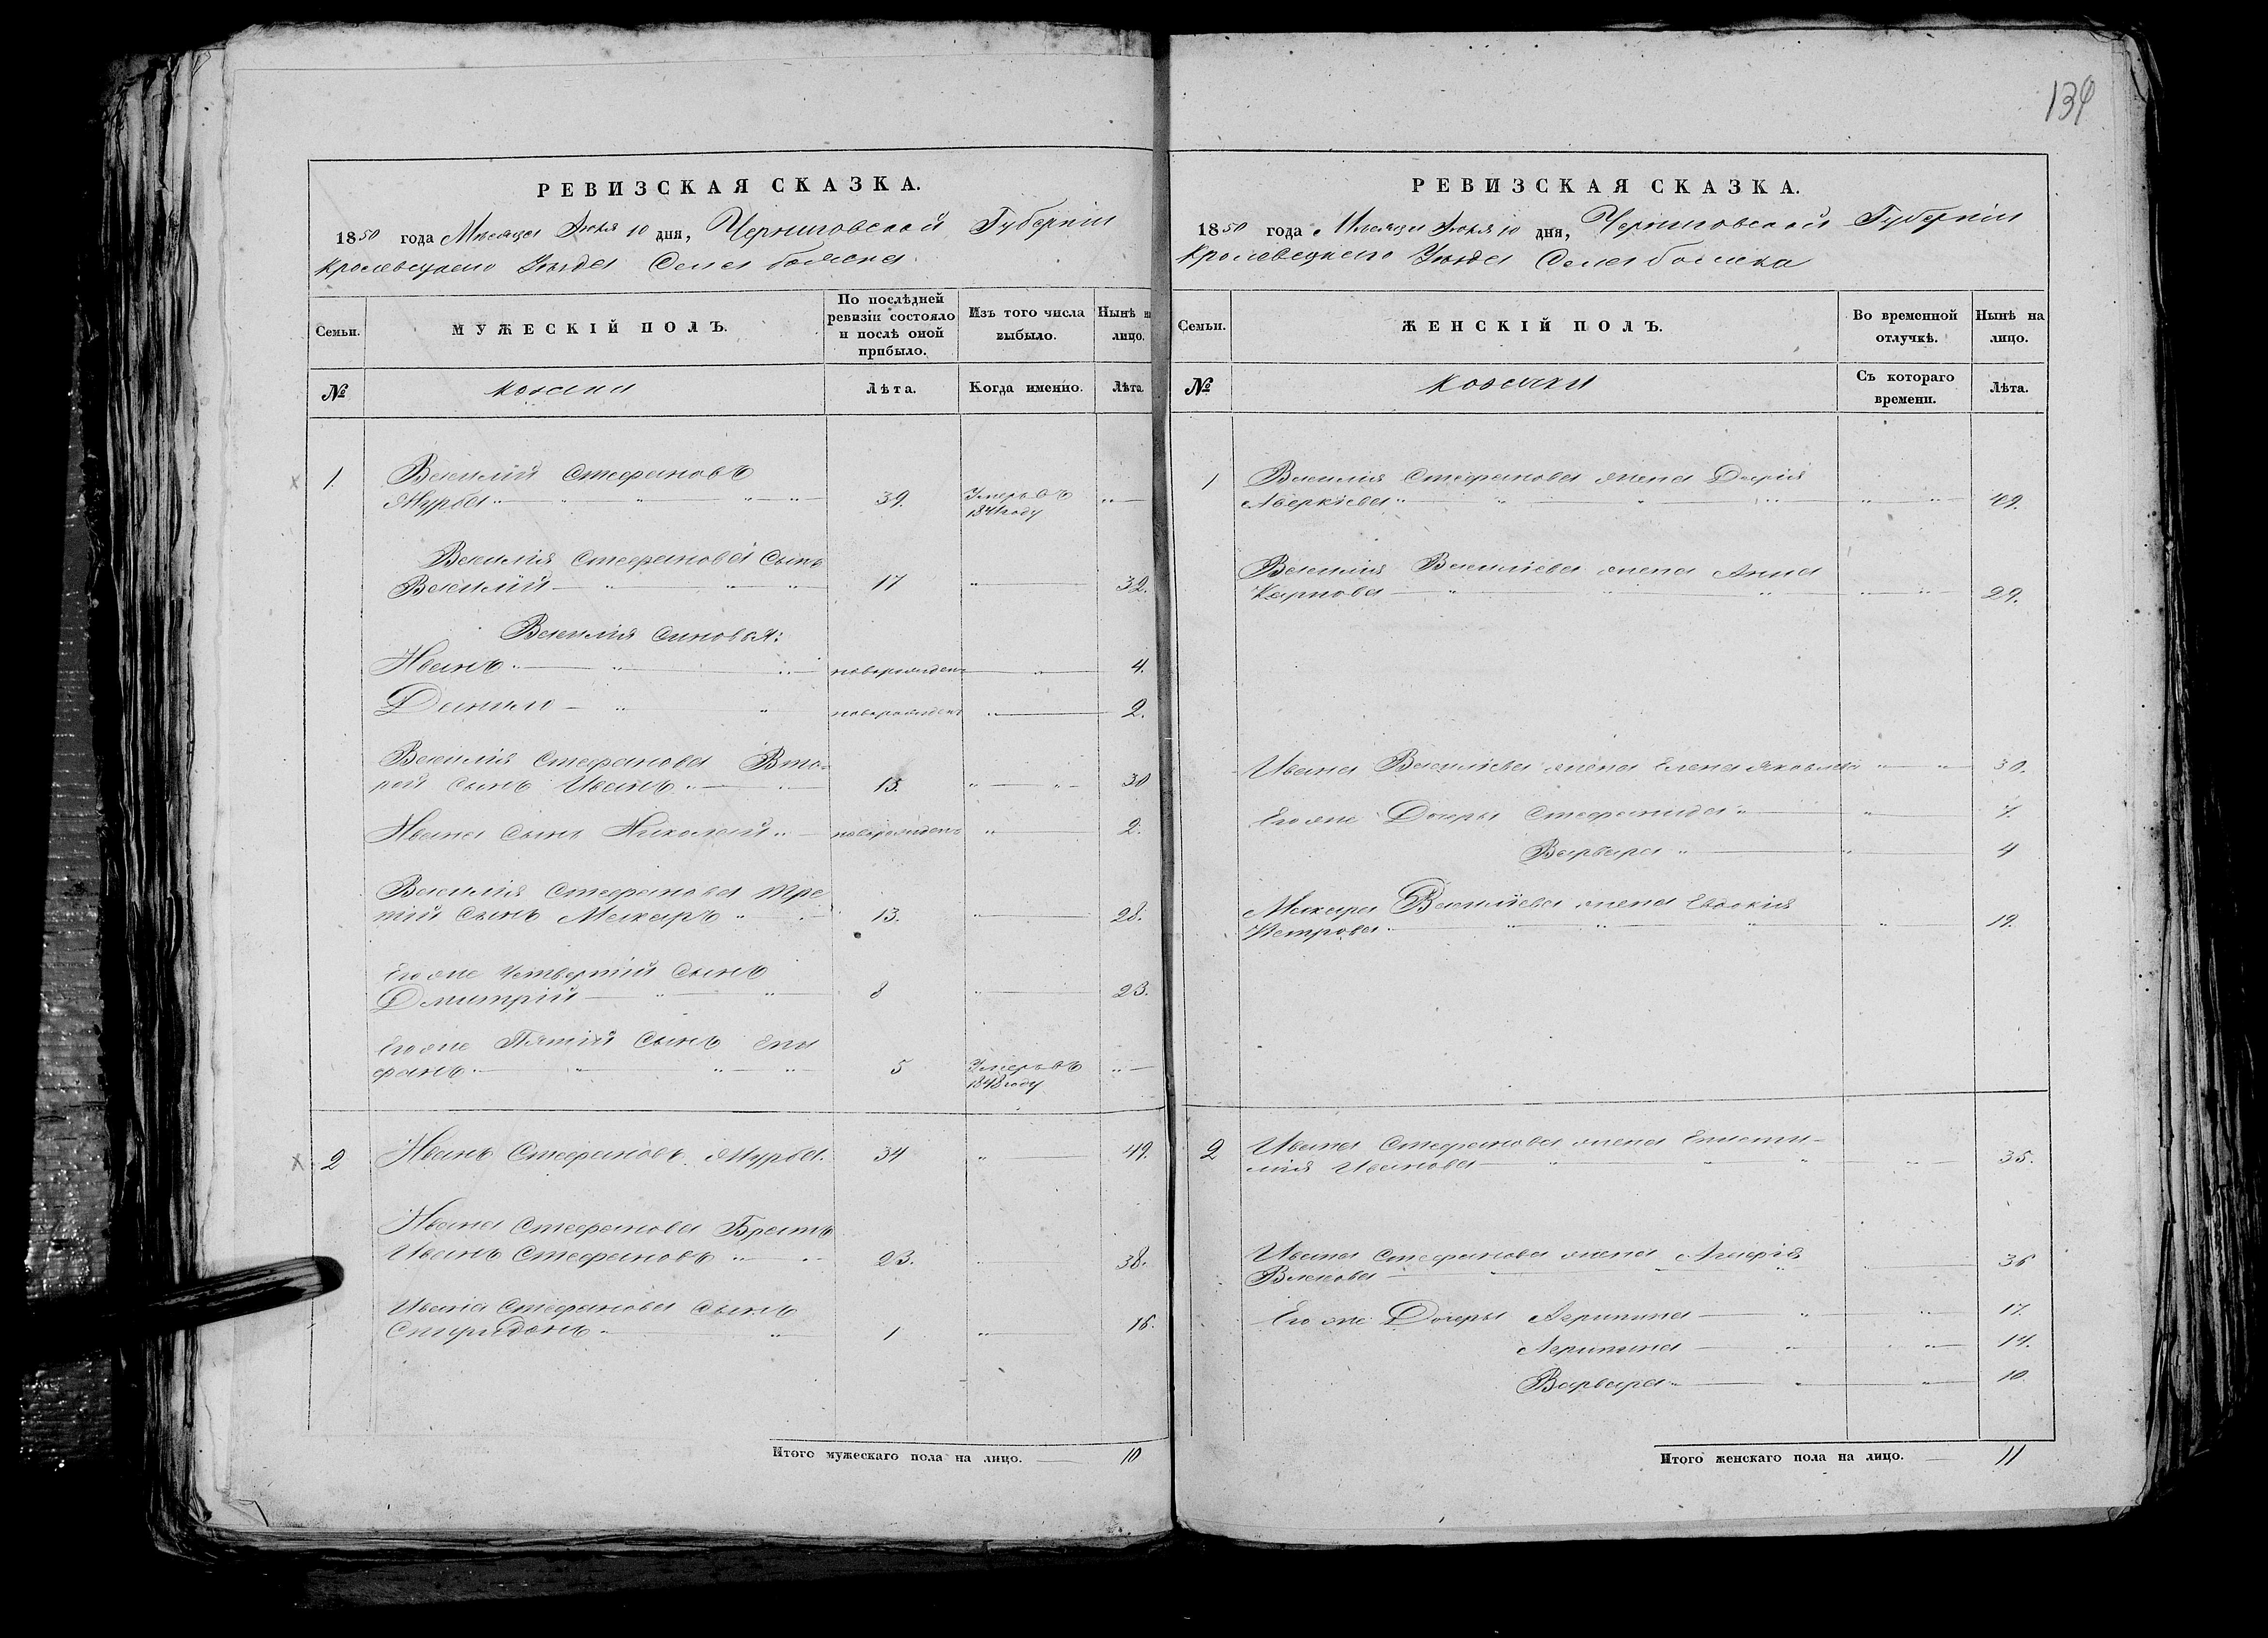 139
РЕВИЗСКАЯ СКАЗКА.
1850 года Месяца Июля 10 дня, Черниговской Губерніи
Кролевецкаго Уезда Села
Семьи.
МУЖЕСКІЙ ПОЛЪ.
По послѣдней ревизіи состояло и послѣ оной прибыло.
Изъ того числа выбыло.
Нынѣ на лицо.
№
козаки
Лѣта.
Когда именно.
Лѣта.
1 Василий Стефановъ
Журба 39. Умеръ въ 1841 году
Василія Стефанова Сынъ
Василий 17 32.
Василия Синовья:
Иванъ новорожденъ 4.
Данило новорожденъ 2.
Василія Стефанова Вто-
рой Сынъ Иванъ 15. 30
Ивана Сынъ Николай новорожденъ 2.
Василія Стефанова Тре
тій Сынъ Макаръ 13. 28.
Егоже Четвертій Сынъ
Дмитрій 8 23.
Егоже Пятій Сынъ Епи
фанъ 5 Умеръ въ 1848 году
2 Иванъ Стефановъ Журба. 34 49.
Ивана Стефанова Братъ
Иванъ Стефановъ 23. 38.
Ивана Стефанова Сынъ
Спиридонъ 1 16.
Итого мужескаго пола на лицо. 10
РЕВИЗСКАЯ СКАЗКА.
1850 года Месяца Июля 10 дня, Черниговской Губерніи
Кролевецкаго Уезда Села
Семьи.
ЖЕНСКІЙ ПОЛЪ.
Во временной отлучкѣ.
Нынѣ на лицо.
№
козачки
Съ котораго времени.
Лѣта.
1 Василія Стефанова жена Дарія
Аверкіева 49.
Василия Василіева жена Анна
Карпова 29.
Ивана Василіева жена Елена Яковлева 30.
Егоже Дочеры Стефанида 7.
Варвара 4
Макара Василіева жена Евдокія
Петрова 19.
2 Ивана Стефанова жена Еписти-
мия Иванова 35.
Ивана Стефанова жена Агафія
36
Егоже Дочеры Агрипина 17.
Агрипина 14.
Варвара 10
Итого женскаго пола на лицо. 11